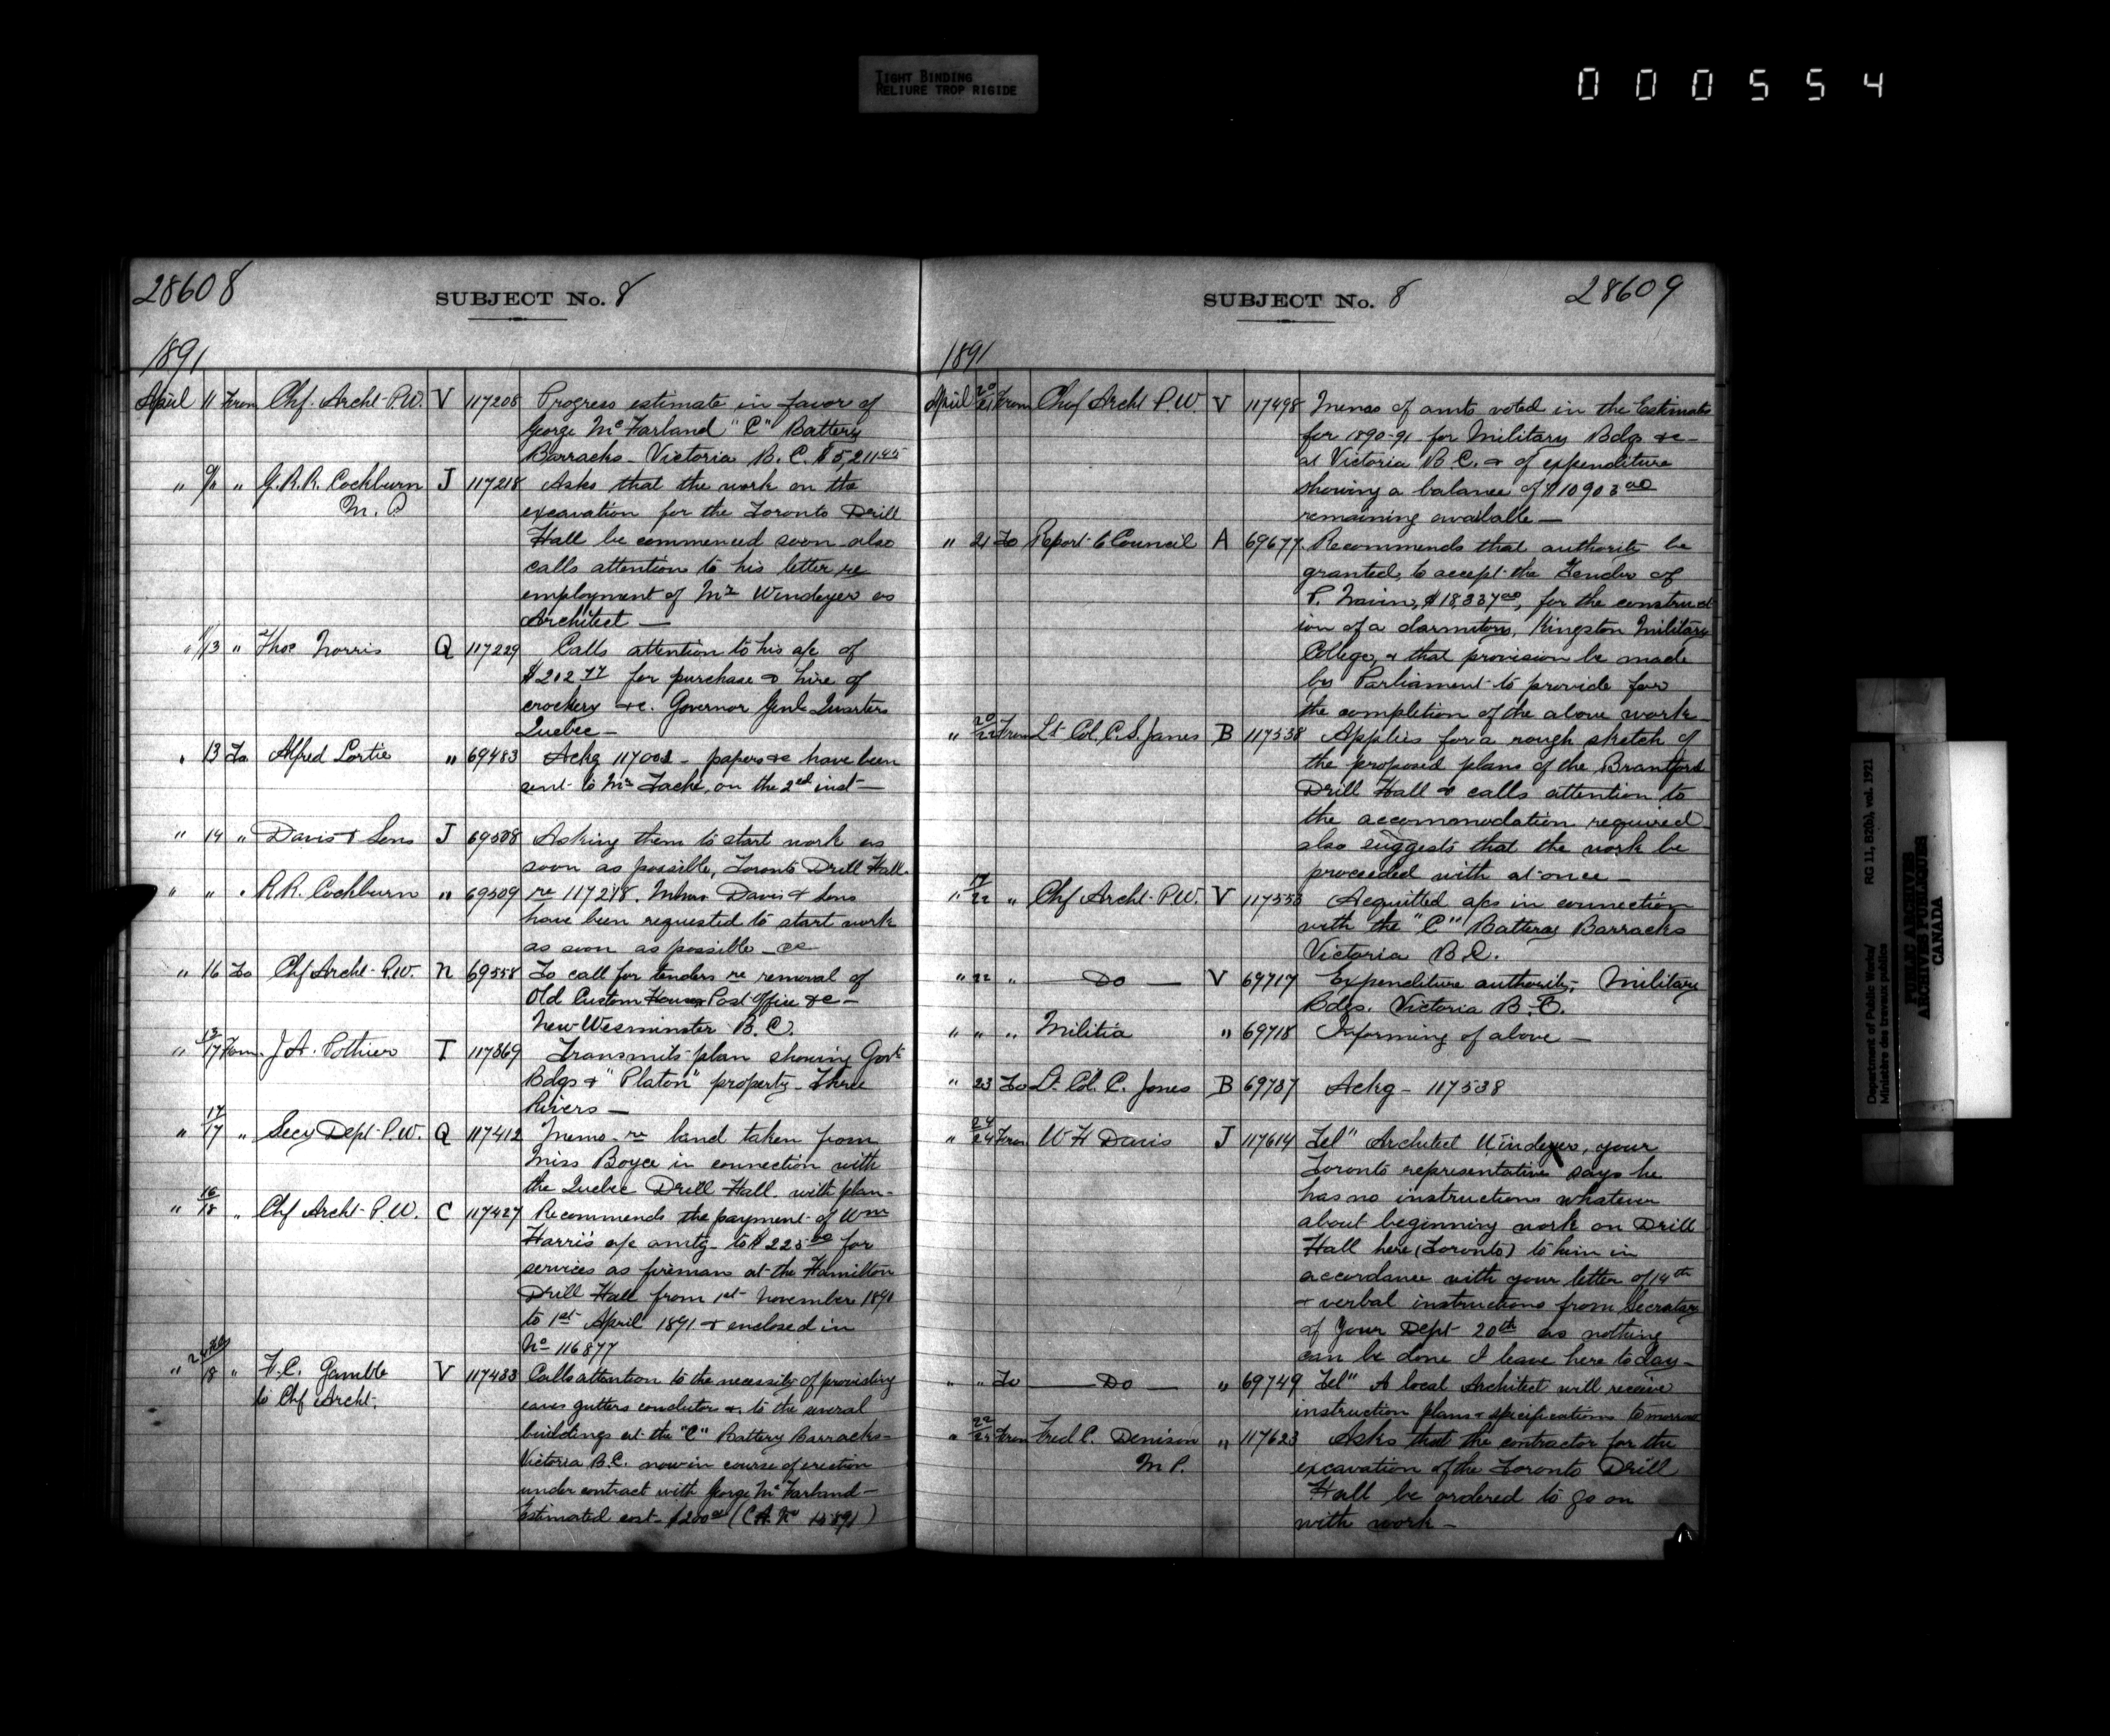 TIGHT BINDING
RELIURE TROP RIGIDE
000554
28608
SUBJECT No. 8
1891
April 11 From Chf. Archt P.W. V 117208 Progress estimate in favor of
George McFarland "C" Battery
Barracks - Victoria B.C. $5,211.45
" 9/11 " G.R.R. Cockburn J 117218 Asks that the work on the
M.P. excavation for the Toronto Drill
Hall be commenced soon also
calls attention to his letter re
employment of Mr Windeyer as
Architect —
" 11/13 " Thos Norris Q 117229 Calls attention to his a/c of
$202.77 for purchase & hire of
crockery &c. Governor Genls Quarters
Quebec —
" 13 To Alfred Lortie " 69483 Ackg 117002 - papers &c have been
sent to Mr Taché, on the 2nd inst —
" 14 " Davis & Sons J 69508 Asking them to start work as
soon as possible, Toronto Drill Hall.
" " " R.R. Cockburn " 69509 re 117218. Messrs Davis & Sons
have been requested to start work
as soon as possible - &c
" 16 To Chf Archt P.W. N 69558 To call for tenders re removal of
Old Custom House, Post Office &c —
New Wesminster B.C.
" 17 From J.A. Pothier T 117369 Transmits plan showing Govt
Bdgs & "Platon" property - Three
Rivers —
" 17/17 " Secy Dept P.W. Q 117412 Memo re land taken from
Miss Boyce in connection with
the Quebec Drill Hall. with plan -
" 16/18 " Chf Archt P.W. C 117427 Recommends the payment of Wm
Harris a/c amtg to $225.00 for
services as fireman at the Hamilton
Drill Hall from 1st November 1890
to 1st April 1891 & enclosed in
No 116877
" 18 " F.C. Gamble V 117433 Calls attention to the necessity of providing
to Chf Archt. eaves gutters conductor &c to the several
buildings at the "C" Battery Barracks -
Victoria B.C. now in course of erection
under contract with George McFarland -
Estimated cost - $200.00 (C.A. No 15891)
SUBJECT No. 8
28609
1891
April 20/21 From Chf Archt P.W. V 117498 Memo of amts voted in the Estimates
for 1890-91 for Military Bdgs &c -
at Victoria B.C. & of expenditure
showing a balance of $10903.00
remaining available —
" 21 To Report to Council A 69677 Recommends that authority be
granted, to accept the Tender of
P. Navin, $18,337.00, for the construct
ion of a dormitory, Kingston Military
College, & that provision be made
by Parliament to provide for
the completion of the above work -
" 20/22 From Lt. Col. C.S. Jones B 117538 Applies for a rough sketch of
the proposed plans of the Brantford
Drill Hall & calls attention to
the accommodation required
also suggests that the work be
proceeded with at once —
" 17/22 " Chf Archt P.W. V 117553 Acquitted a/cs in connection
with the "C" Battery Barracks
Victoria B.C.
" 22 " — Do — V 69717 Expenditure authority, Military
Bdgs. Victoria B.C.
" " " Militia " 69718 Informing of above —
" 23 To Lt. Col. C. Jones B 69737 Ackg - 117538
" 24/24 From W H Davis J 117614 Tel" Architect Windeyer, your
Toronto representative says he
has no instructions whatever
about beginning work on Drill
Hall here (Toronto) to him in
accordance with your letter of 14th
& verbal instructions from Secretary
of Your Dept 20th as nothing
can be done I leave here today -
" " To — Do — " 69749 Tel" A local Architect will receive
instruction plans & specifications tomorrow
" 22/25 From Fred C. Denison " 117623 Asks that the contractor for the
M.P. excavation of the Toronto Drill
Hall be ordered to go on
with work —
Department of Public Works/
Ministère des travaux publics
RG 11, B2(b), vol. 1921
PUBLIC ARCHIVES
ARCHIVES PUBLIQUES
CANADA